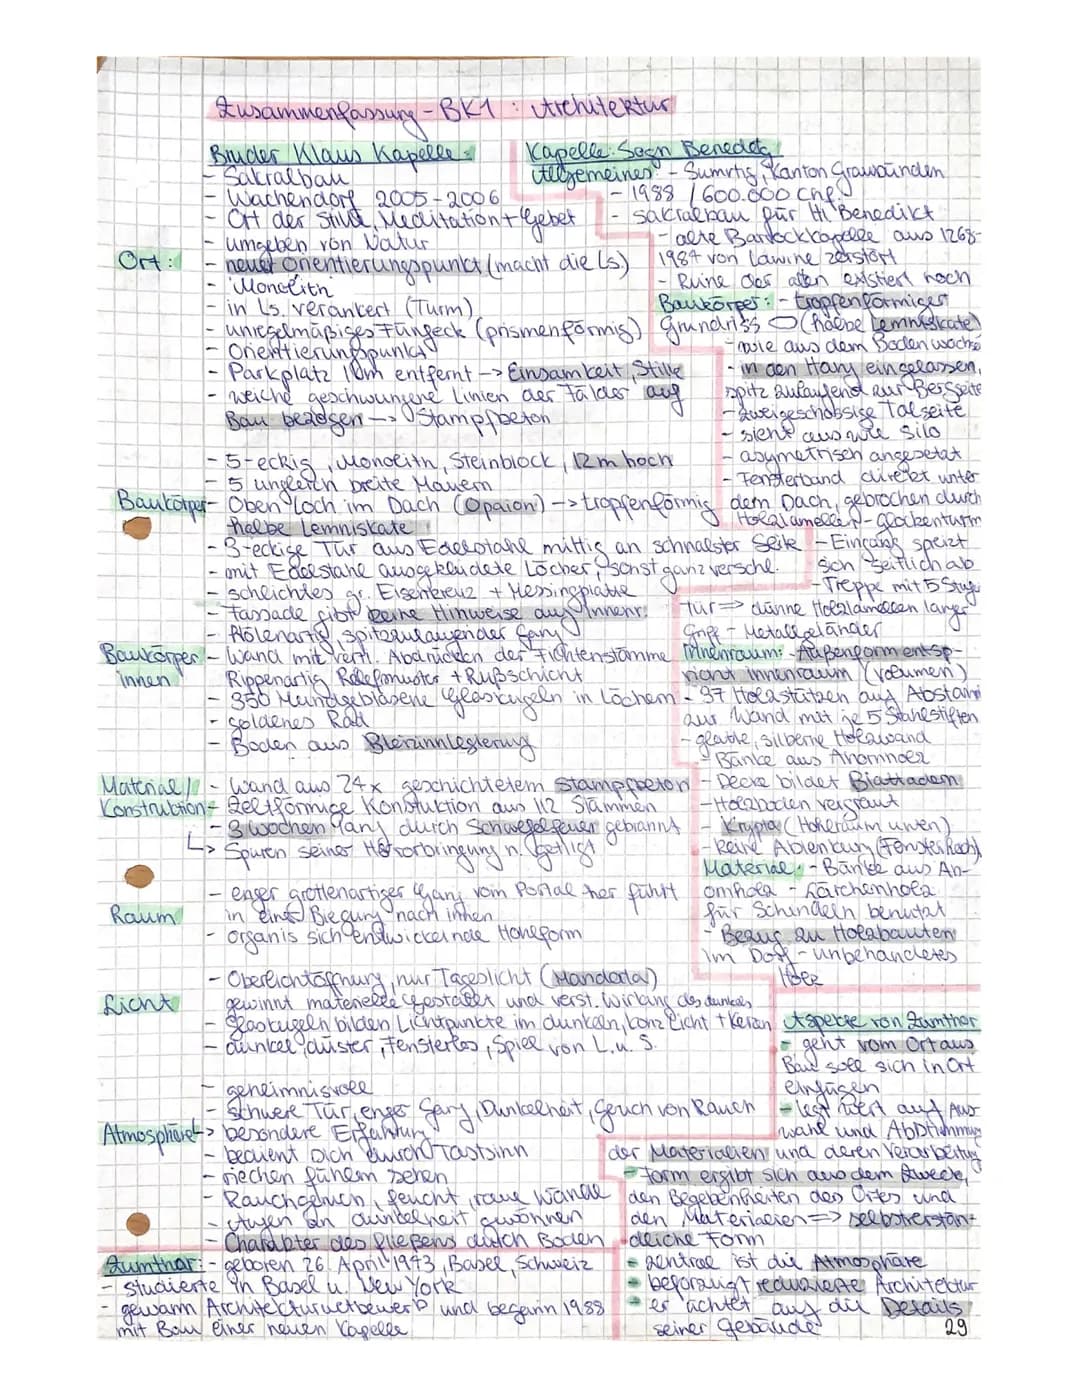 Zusammenfassung - BK1 : Architektur
Bruder Klaus Kapelle:
- Sakralbau
- Wachendorf 2005-2006
- Ort der Stille, Meditation + Gebet
- umgeben von Natur
Ort: - neuer Orientierungspunkt (macht die Ls)
- Monolith
- in Ls. verankert (Turm)
- unregelmäßiges Fünfeck (prismenförmig)
- Orientierungspunkt
- Parkplatz 10m entfernt -> Einsamkeit, Stille
- weiche geschwungene Linien der Fälder auf
Bau bezogen -> Stampfbeton
- 5-eckig, Monolith, Steinblock, 12m hoch
- 5 ungleich breite Mauern
Baukörper - Oben Loch im Dach (Opaion) -> tropfenförmig
halbe Lemniskate
- 3-eckige Tür aus Edelstahl mittig an schmalster Seite
- mit Edelstahl ausgekleidete Löcher, sonst ganz versche.
- schlichtes gr. Eisenkreuz + Messingplatte
- Fassade gibt keine Hinweise auf Innenr.
- Hölenartig, spitzzulaufender Gang
Baukörper innen - Wand mit vert. Abdrücken der Fichtenstämme
- Rippenartig Reliefmuster + Rußschicht
- 350 Mundgeblasene Glaskugeln in Löchern
- goldenes Rad
- Boden aus Bleizinnlegierung
Material/ - Wand aus 24x geschichtetem Stampfbeton
Konstruktion - Zeltförmige Konstuktion aus 112 Stämmen
- 3 Wochen lang durch Schwefelfeuer gebrannt
-> Spuren seiner Hervorbringung n. getilgt
- enger grottenartiger Gang vom Portal her führt
Raum in einer Biegung nach innen
- organis sich entwickelnde Hohlform
- Oberlichtöffnung, nur Tageslicht (Mandorla)
Licht gewinnt materielle Gestallt und verst. Wirkung des dunkels
- Glaskugeln bilden Lichtpunkte im dunkeln, bzw Licht + Kerzen
- dunkel, düster, Fensterlos, Spiel von L. u. S.
- geheimnisvoll
- schwere Tür, enger Gang, Dunkelheit, Geruch von Rauch
Atmosphäre -> besondere Erfahrung
- bedient sich durch Tastsinn
- riechen fühlen sehen
- Rauchgeruch, feucht, raue Wände
- Augen an dunkelheit gewöhnen
- Charakter des fließens durch Boden
Zumthor: - geboren 26. April 1943, Basel, Schweiz
- studierte in Basel u. New York
- gewann Architekturwettbewerb und begann 1988
mit Bau einer neuen Kapelle
Kapelle: Sogn Benedetg
Allgemeines: - Sumvtig, Kanton Grawbünden
- 1988 / 600.000 CHF.
- Sakralbau für Hl. Benedikt
- alte Barockkapelle aus 1268-
1984 von Lawine zerstört
- Ruine der alten existiert noch
Baukörper: - tropfenförmiger
Grundriss (halbe Lemniskate)
- wie aus dem Boden wachs
- in den Hang eingelassen,
spitz zulaufend zur Bergseite
- zweigeschossige Talseite
- sieht aus wie Silo
- asymetrisch angesetzt
- Fensterband direkt unter
dem Dach, gebrochen durch
Holzlamellen - Glockenturm
- Eingang speizt
sich seitlich ab
- Treppe mit 5 Stuf
Tür => dünne Holzlamellen langer
Griff - Metallgeländer
Innenraum: - Außenform entsp-
richt innenraum (volumen)
- 37 Holzstützen auf Abstand
zur Wand mit je 5 Stahlstiften
- glatte, silberne Holzwand
- Bänke aus Ahornholz
- Decke bildet Blattadern
- Holzboden vergraut
- Krypta (Hohlraum unten)
- keine Ablenkung (Fenster hoch)
Material: - Bänke aus Ah-
ornholz - Lärchenholz
für Schindeln benutzt
- Bezug zu Holzbauten
im Dorf - unbehandeltes
Holz
Aspekte von Zumthor
- geht vom Ort aus
Bau soll sich in Ort
einfügen
- legt Wert auf Aus-
wahl und Abstimmung
der Materialien und deren Verarbeitung
- Form ergibt sich aus dem Zweck,
den Begebenheiten des Ortes und
den Materialien => selbstverstän-
dliche Form
- zentral ist die Atmosphäre
- beforzugt reduzierte Architektur
- er achtet auf die Details
seiner Gebäude
29